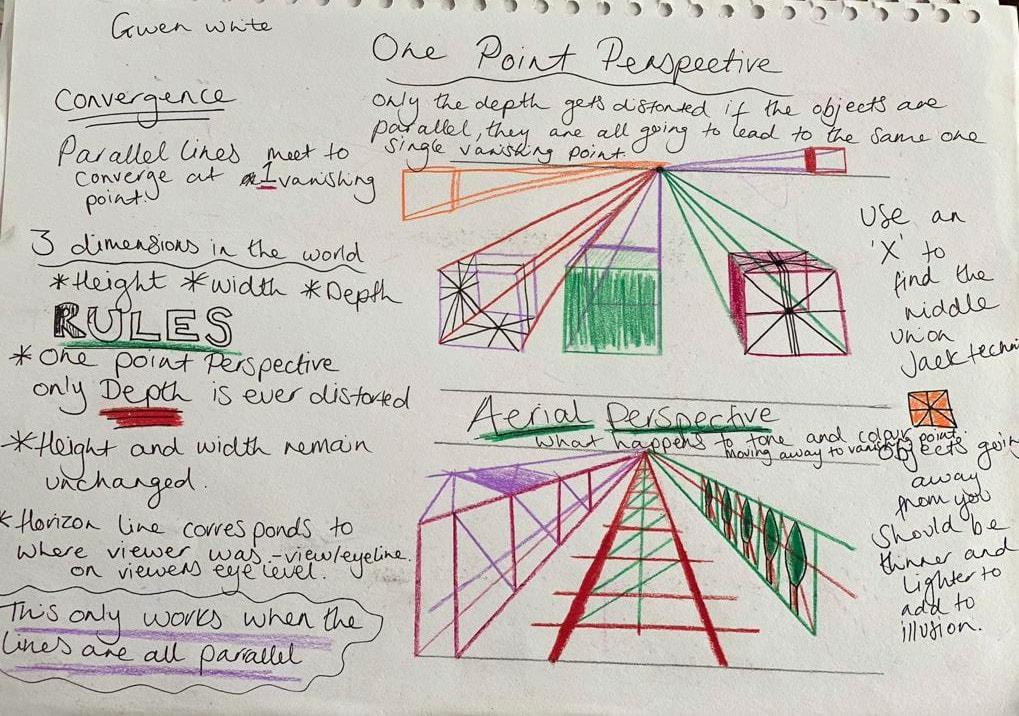 Gwen white
One Point Perspective
Only the depth gets distorted if the objects are
parallel, they are all going to lead to the same one
single vanishing point.
Convergence
Parallel lines meet to
converge at 1 vanishing
point.
3 dimensions in the world
*Height *width *Depth
RULES
* One point Perspective
only Depth is ever distorted
*Height and width remain
unchanged.
*Horizon line corresponds to
where viewer was - view/eyeline.
on viewers eye level.
This only works when the
lines are all parallel
Use an
'X' to
find the
middle
union
Jack techni
Aerial Perspective
what happens to tone and colour
moving away to vanishing point.
Objects going
away
from you
should be
thinner and
lighter to
add to
illusion.